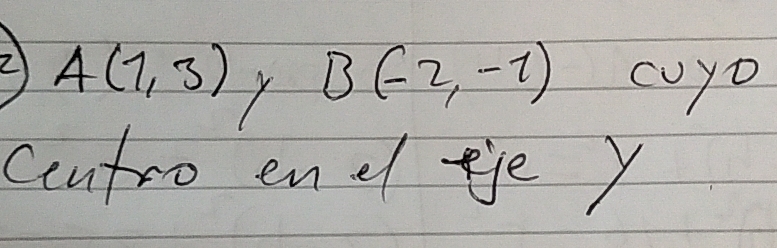 2) A(1,3) y B(-2,-1) cuyo
Centro en el eje y